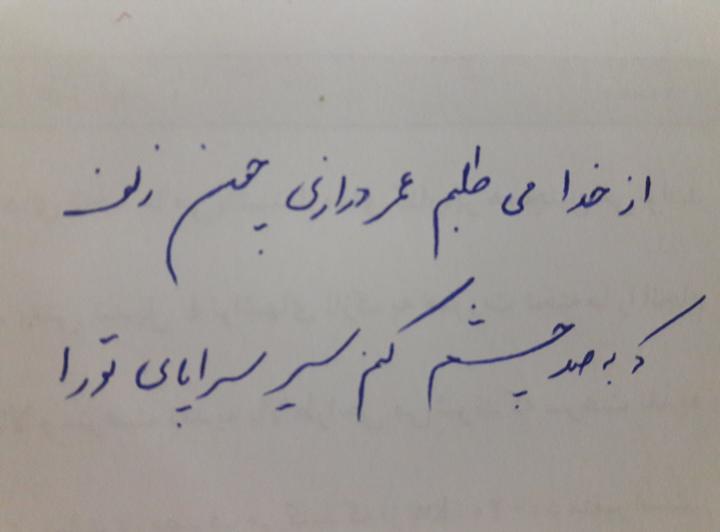 از خدا می طلبم عمر درازی چون زلف
که به صد چشم کنم سیر سراپای تو را